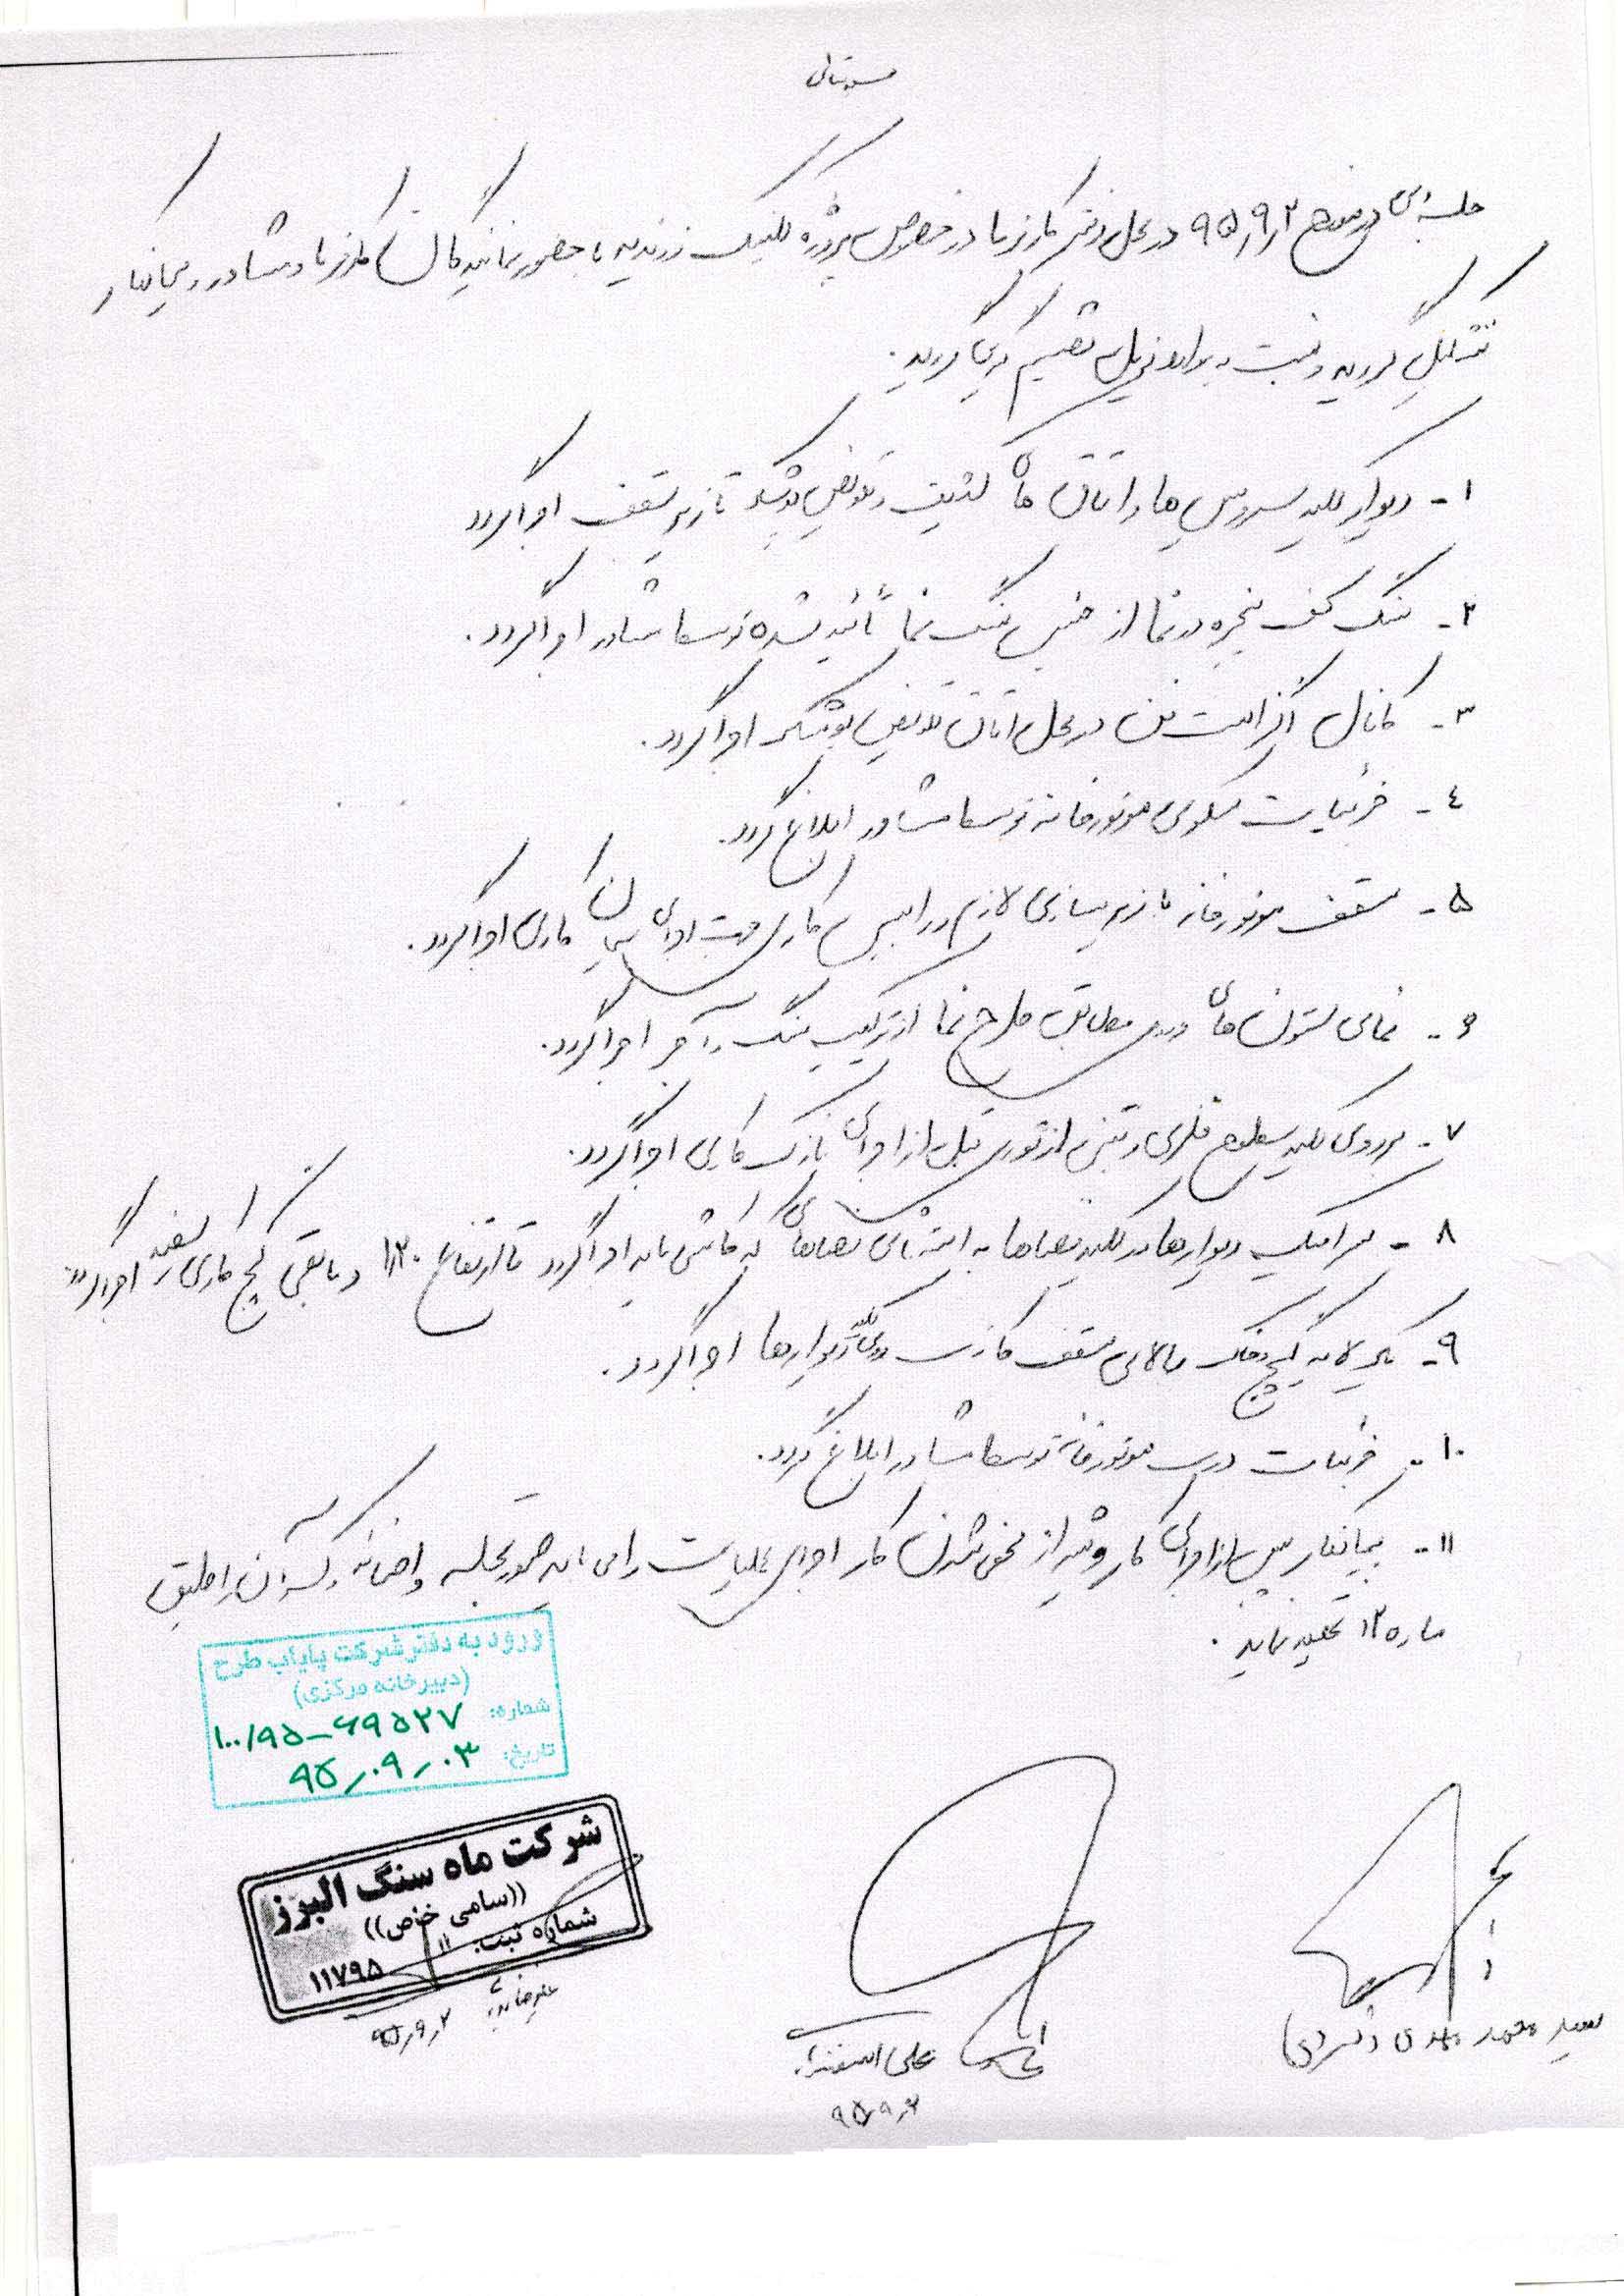 جلسه‌ای در مورخ ۹۵/۹/۲ در محل دفتر کارفرما در خصوص پروژه کلینیک زرندیه با حضور نمایندگان کارفرما و مشاور و پیمانکار
تشکیل گردید و نسبت به موارد ذیل تصمیم گیری گردید.
۱- دیوار کلیه سرویس ها و اتاق های کثیف و تعویض پوشک تا زیر سقف اجرا گردد
۲- سنگ کف پنجره در نما از جنس سنگ نما تأئید شده توسط مشاور اجرا گردد.
۳- کانال اگزاست فن در محل اتاق تعویض پوشک اجرا گردد.
٤- جزئیات سکوی موتورخانه توسط مشاور ابلاغ گردد.
۵- سقف موتورخانه با زیرسازی لازم و رابیتس کاری جهت اجرای سیمان کاری اجرا گردد.
۶- نمای ستون های ورودی مطابق طرح نما از ترکیب سنگ و آجر اجرا گردد.
۷- بر روی کلیه سطوح فلزی و بتنی از توری قبل از اجرای نازک کاری اجرا گردد.
۸- سرامیک دیوارها در کلیه فضاها به استثنای فضاهای که کاشی باید اجرا گردد تا ارتفاع ۱٫۲۰ و مابقی گچ کاری سفید اجرا گردد
۹- یک لایه گچ و خاک بالای سقف کاذب روی کلیه دیوارها اجرا گردد.
۱۰- جزئیات درب موتورخانه توسط مشاور ابلاغ گردد.
۱۱- پیمانکار پس از اجرای کار و قبل از مخفی شدن کار اجرای عملیات را می باید صورتجلسه و اضافه و کسر آن را طبق
ماده ۱۲ تکمیل نماید.
ورود به دفتر شرکت پایاب طرح
(دبیرخانه مرکزی)
شماره: ۱۰۰/۹۵-۶۹۵۲۷
تاریخ: ۹۵/۰۹/۰۳
شرکت ماه سنگ البرز
((سامی خاص))
شماره ثبت: ۱۱۷۹۵
۹۵/۹/۲
علی اسفندیاری
۹۵/۹/۲
سید محمد مهدی